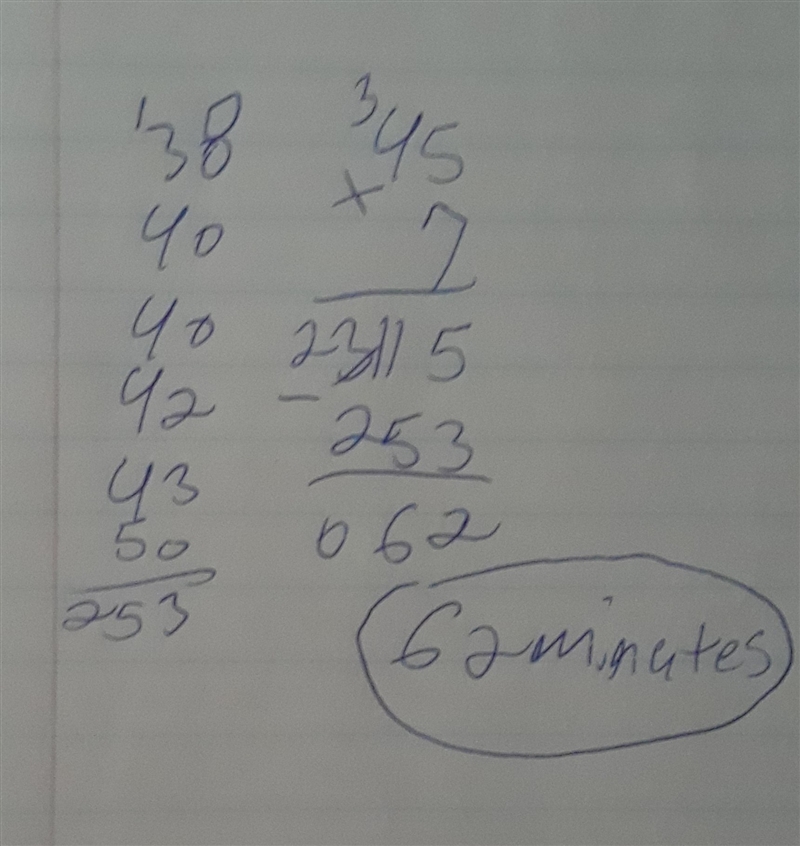 ¹38
40
40
42
43
50
253
³45
× 7
23115
- 253
062
62 minutes